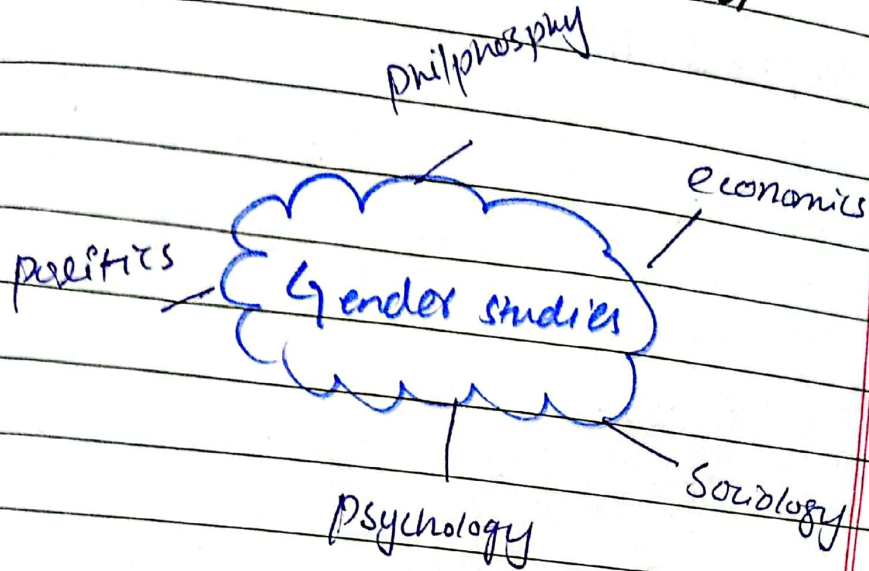 philphosphy
economics
politics
Gender studies
Sociology
psychology